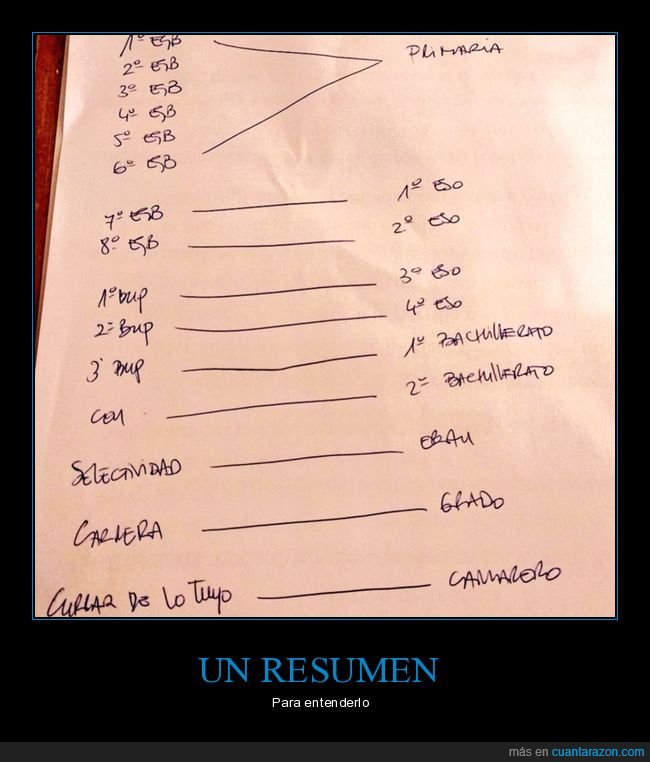 1º EGB PRIMARIA
2º EGB
3º EGB
4º EGB
5º EGB
6º EGB
7º EGB 1º ESO
8º EGB 2º ESO
1º BUP 3º ESO
2º BUP 4º ESO
3º BUP 1º BACHILLERATO
COU 2º BACHILLERATO
SELECTIVIDAD EBAU
CARRERA GRADO
CURRAR DE LO TUYO CAMARERO
UN RESUMEN
Para entenderlo
más en cuantarazon.com